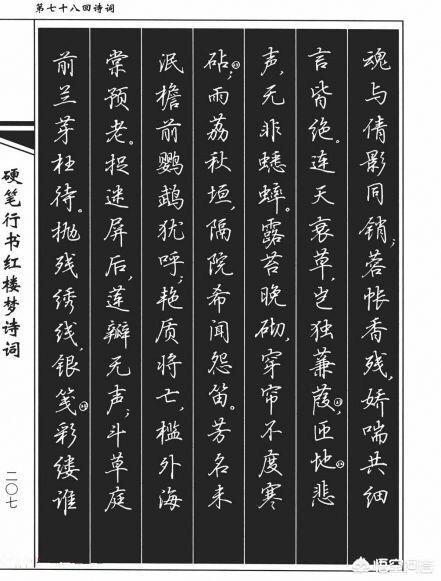 第七十八回诗词
魂与倩影同销;蓉帐香残,娇喘共细
言皆绝。连天衰草,岂独蒹葭,匝地悲
声,无非蟋蟀。露苔晚砌,穿帘不度寒
砧,雨荔秋垣,隔院希闻怨笛。芳名未
泯檐前鹦鹉犹呼;艳质将亡,槛外海
棠预老。捉迷屏后,莲瓣无声;斗草庭
前兰芽枉待。抛残绣线,银笺彩缕谁
硬笔行书红楼梦诗词
二〇七
悟空问答